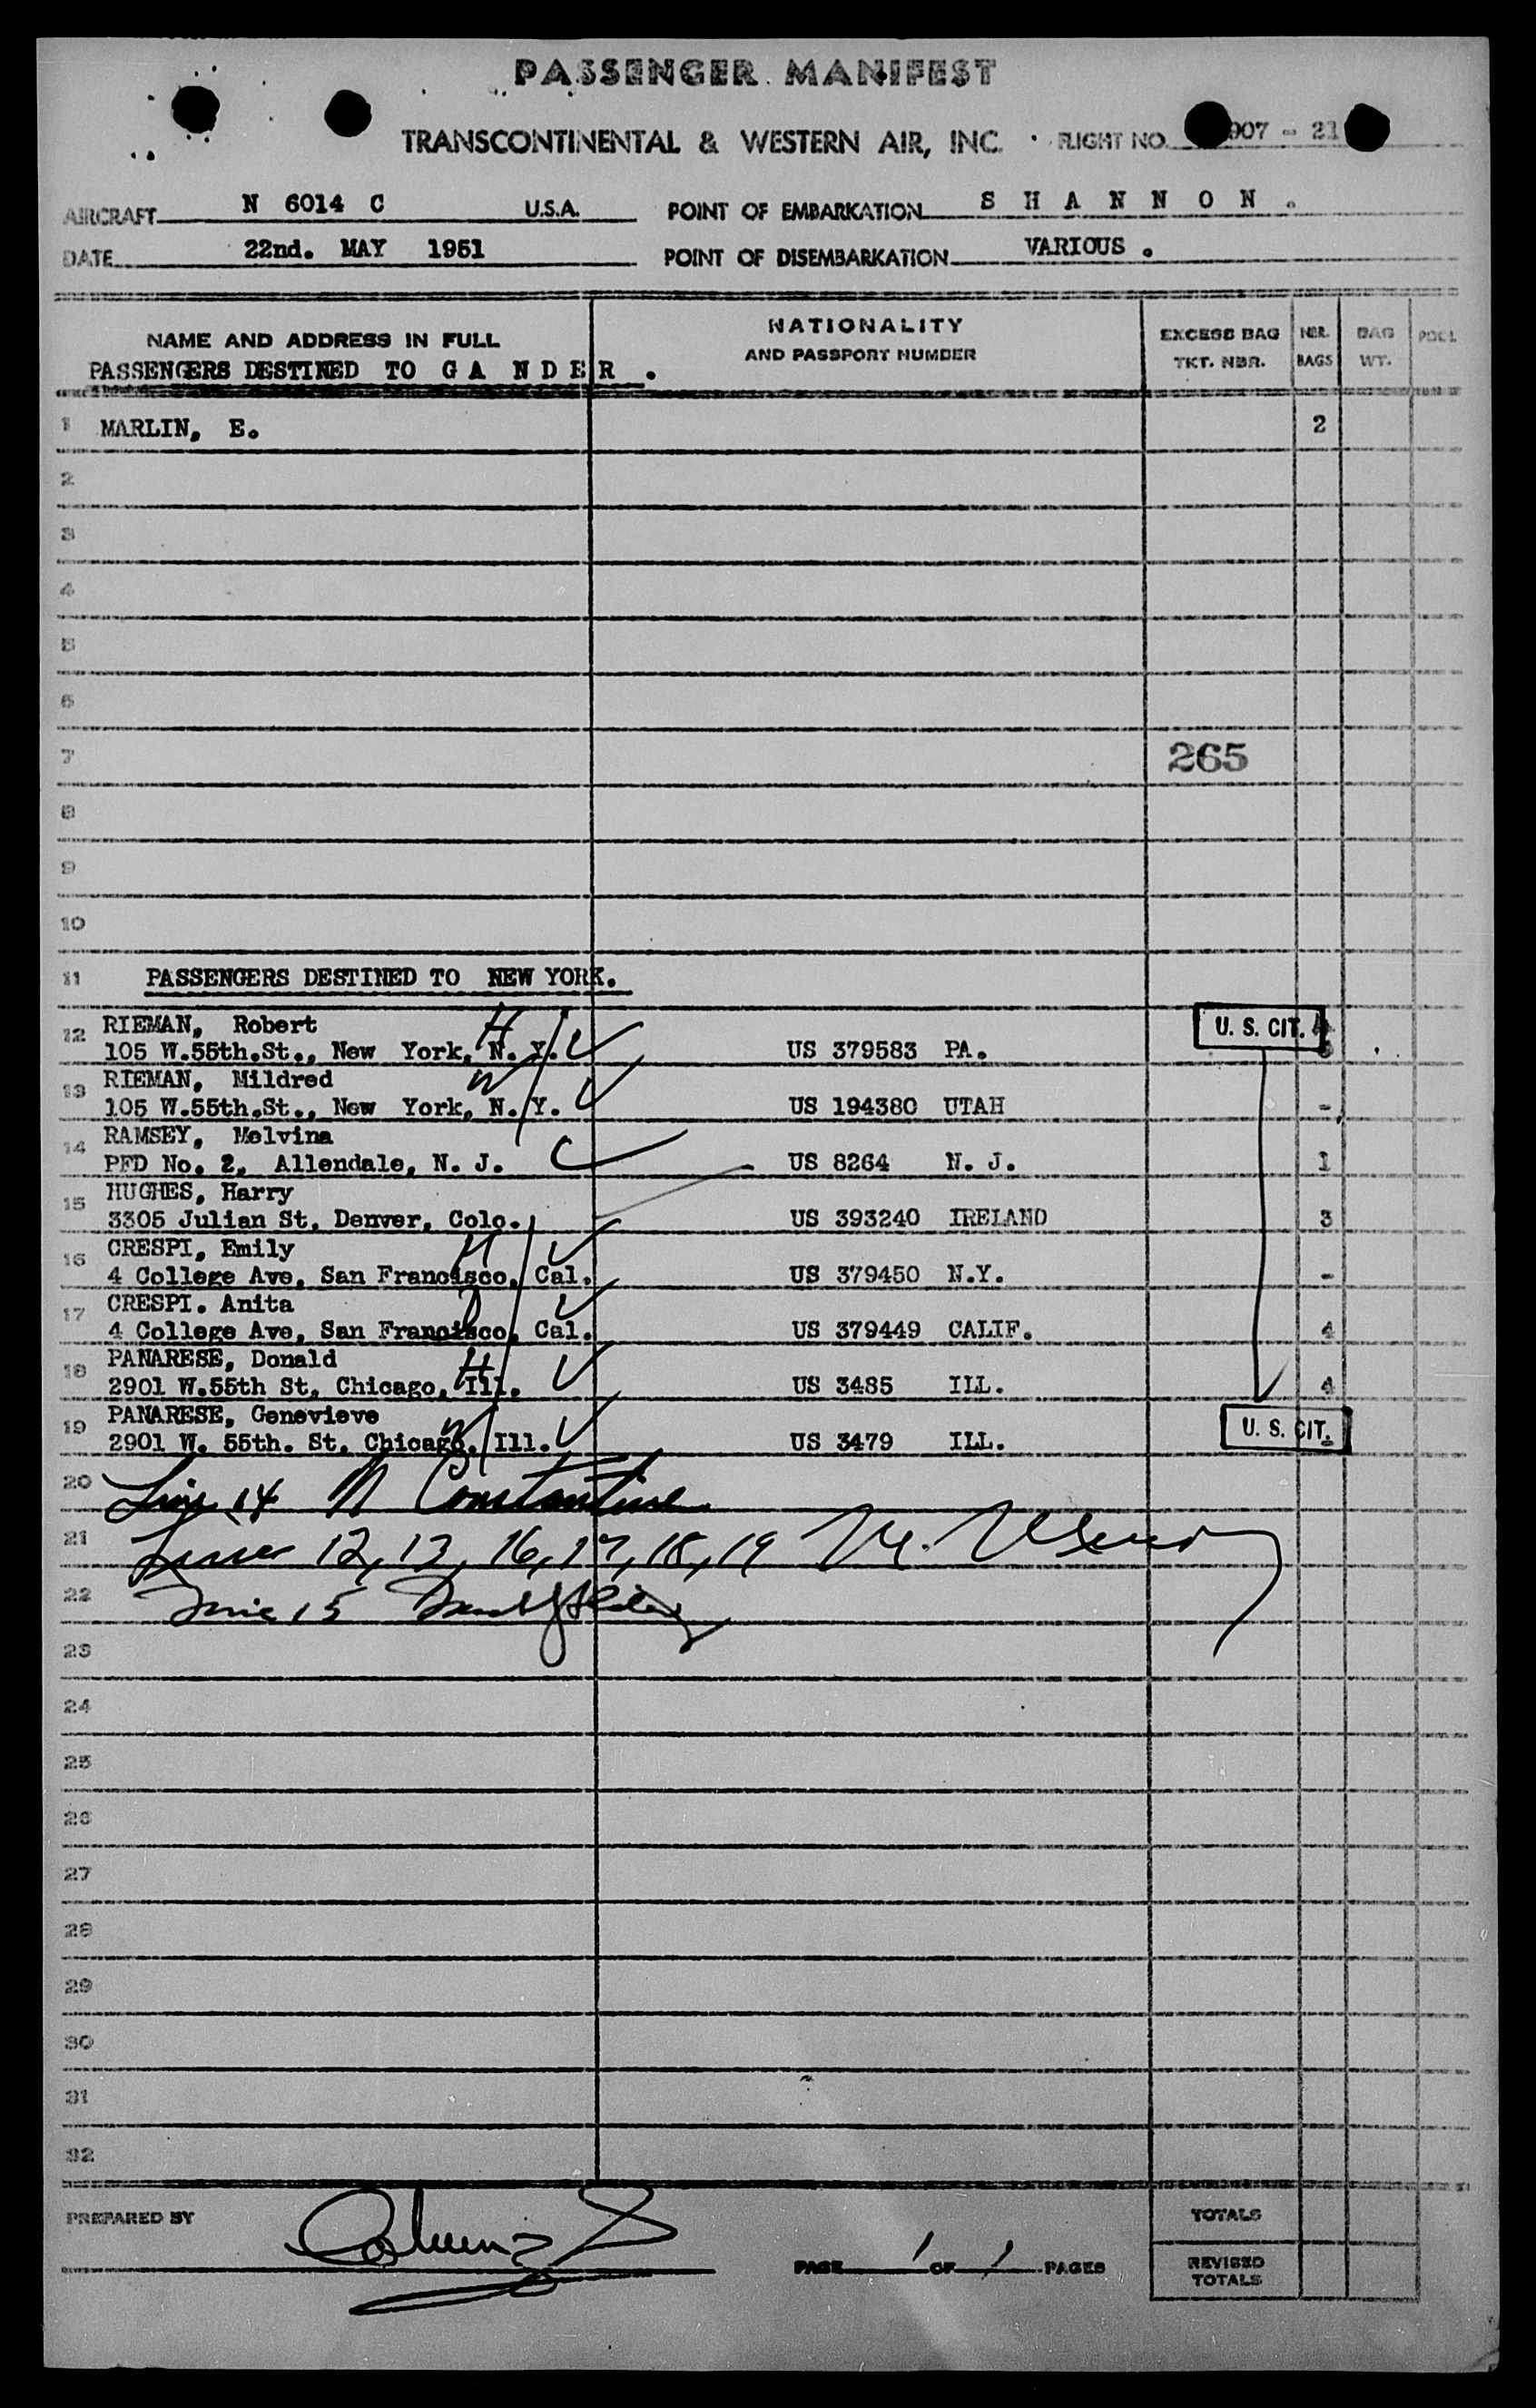 PASSENGER MANIFEST
TRANSCONTINENTAL & WESTERN AIR, INC. FLIGHT NO. 907 - 21
AIRCRAFT N 6014 C U.S.A. POINT OF EMBARKATION S H A N N O N .
DATE 22nd. MAY 1951 POINT OF DISEMBARKATION VARIOUS .
NAME AND ADDRESS IN FULL NATIONALITY AND PASSPORT NUMBER EXCESS BAG TKT. NBR. NBR. BAGS BAG WT. POOL
PASSENGERS DESTINED TO G A N D E R .
1 MARLIN, E. 2
2
3
4
5
6
7 265
8
9
10
11 PASSENGERS DESTINED TO NEW YORK.
12 RIEMAN, Robert H U. S. CIT.
105 W.55th.St., New York, N. Y. US 379583 PA.
13 RIEMAN, Mildred W
105 W.55th.St., New York, N. Y. US 194380 UTAH -
14 RAMSEY, Melvina
PFD No. 2, Allendale, N. J. US 8264 N. J. 1
15 HUGHES, Harry
3305 Julian St, Denver, Colo. US 393240 IRELAND 3
16 CRESPI, Emily
4 College Ave, San Francisco, Cal. US 379450 N.Y. -
17 CRESPI. Anita
4 College Ave, San Francisco, Cal. US 379449 CALIF. 4
18 PANARESE, Donald H
2901 W.55th St, Chicago, Ill. US 3485 ILL. 4
19 PANARESE, Genevieve W U. S. CIT.
2901 W. 55th. St, Chicago, Ill. US 3479 ILL. -
20 Line 14 N Constantine
21 Lines 12, 13, 16, 17, 18, 19 M.
22 Line 15
23
24
25
26
27
28
29
30
31
32
PREPARED BY TOTALS
PAGE 1 OF 1 PAGES REVISED TOTALS